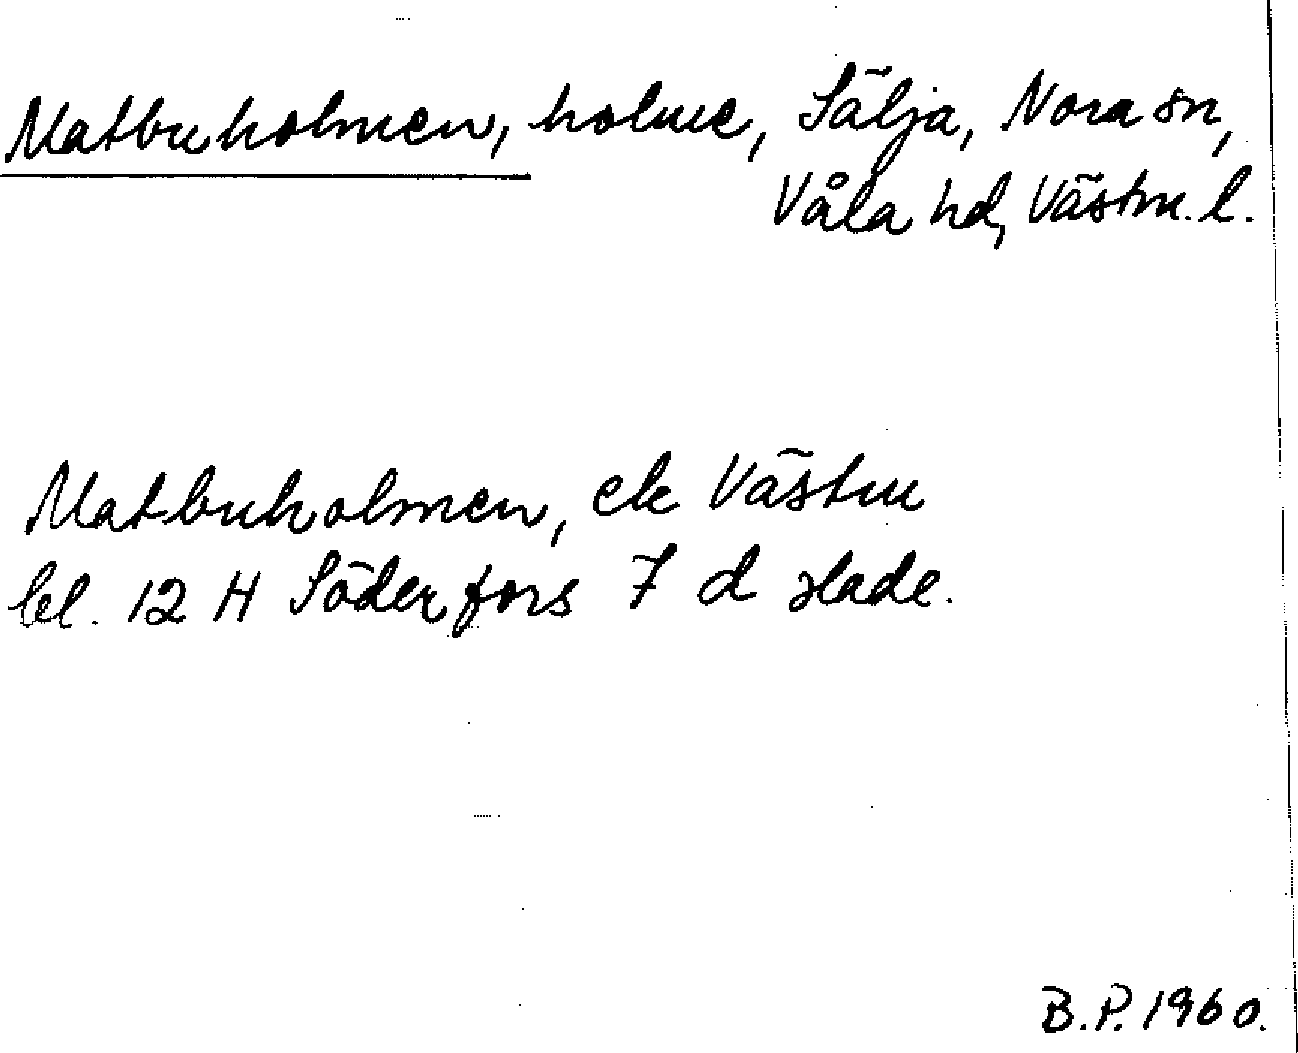 Matbuholmen, holme, Sälja, Nora sn,
Våla hd, Västm. l.
Matbuholmen, ek Västm
bl. 12 H Söderfors 7 d Hade.
B.P. 1960.